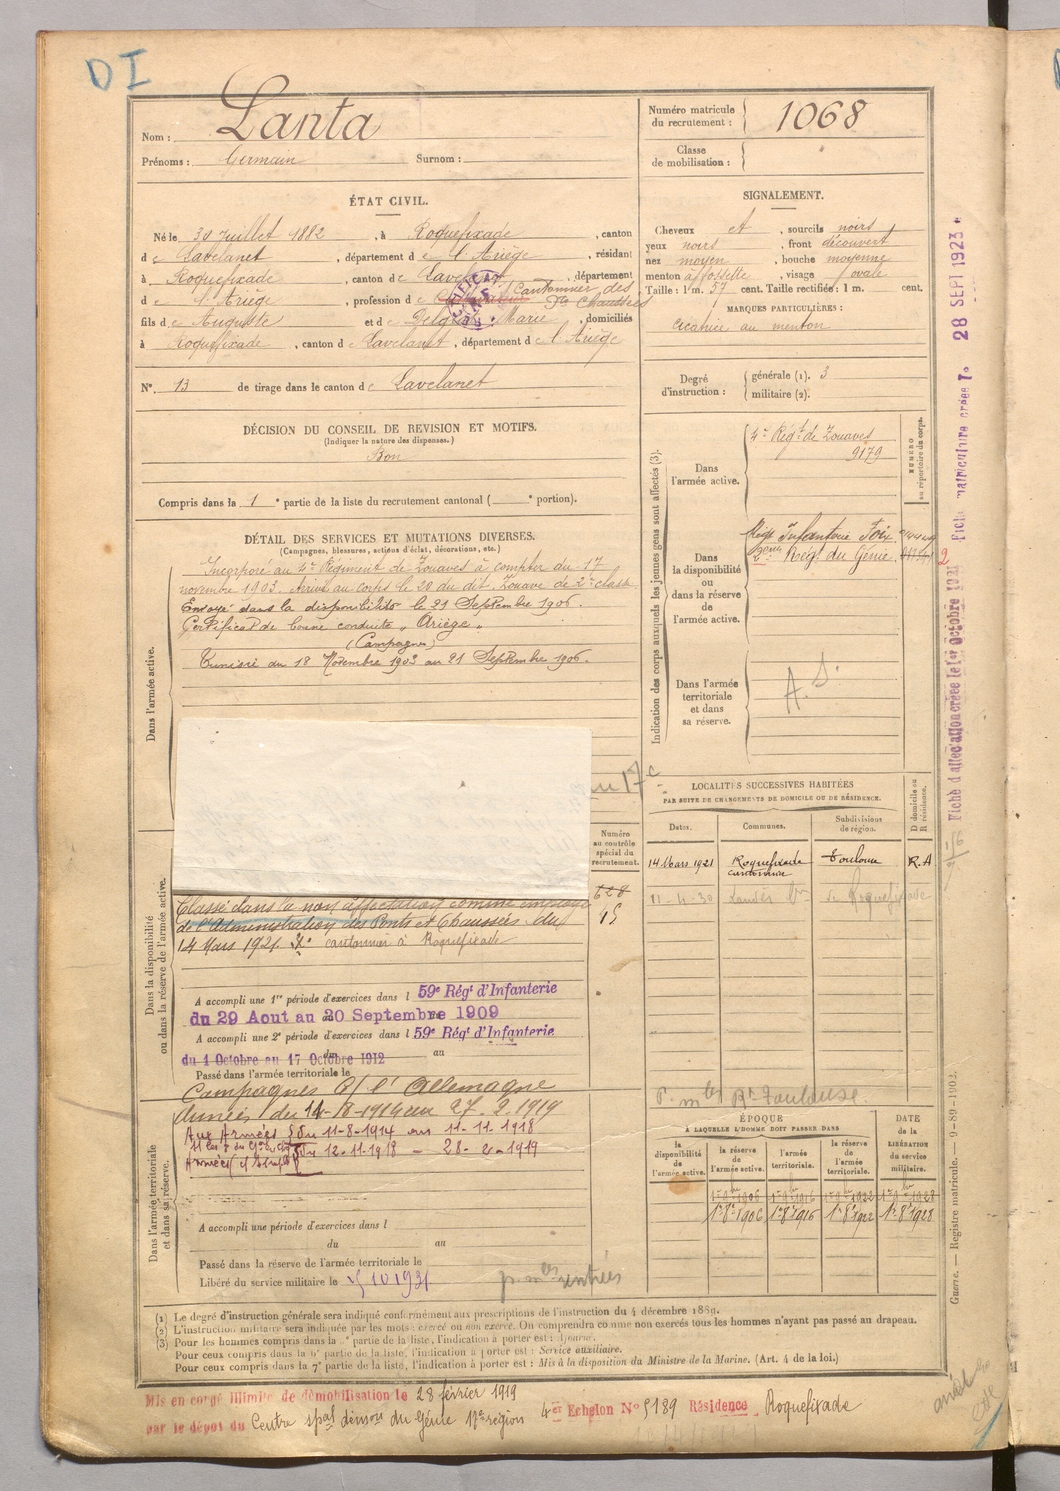 DI
Nom : Lanta
Prénoms : Germain Surnom :
Numéro matricule du recrutement : 1068
Classe de mobilisation :
ÉTAT CIVIL.
Né le 30 Juillet 1882, à Roquefixade, canton
de Lavelanet, département de l'Ariège, résidant
à Roquefixade, canton de Lavelanet, département
de l'Ariège, profession de Cantonnier des Pts Chaussées
fils de Auguste et de Marie, domiciliés
à Roquefixade, canton de Lavelanet, département de l'Ariège
N° 13 de tirage dans le canton de Lavelanet
SIGNALEMENT.
Cheveux et, sourcils noirs
yeux noirs, front découvert
nez moyen, bouche moyenne
menton à fossette, visage ovale
Taille : 1 m. 57 cent. Taille rectifiée : 1 m. cent.
MARQUES PARTICULIÈRES :
Cicatrice au menton
Degré d'instruction : générale (1). 3
militaire (2).
DÉCISION DU CONSEIL DE REVISION ET MOTIFS.
(Indiquer la nature des dispenses.)
Bon
Compris dans la 1e partie de la liste du recrutement cantonal ( e portion).
DÉTAIL DES SERVICES ET MUTATIONS DIVERSES.
(Campagnes, blessures, actions d'éclat, décorations, etc.)
Dans l'armée active.
Incorporé au 4e Régiment de Zouaves à compter du 17
novembre 1903. Arrivé au corps le 20 du dit. Zouave de 2e classe
Envoyé dans la disponibilité le 21 Septembre 1906.
Certificat de bonne conduite "Ariège"
(Campagnes)
Tunisie du 18 Novembre 1903 au 21 Septembre 1906.
Indication des corps auxquels les jeunes gens sont affectés (3).
NUMÉRO au répertoire du corps.
Dans l'armée active.
4e Régt de Zouaves
9179
Dans la disponibilité ou dans la réserve de l'armée active.
Régt Infanterie Foix
Régt du Génie
2
Dans l'armée territoriale et dans sa réserve.
A. S.
au 17e
Numéro au contrôle spécial du recrutement.
628
15
LOCALITÉS SUCCESSIVES HABITÉES
PAR SUITE DE CHANGEMENTS DE DOMICILE OU DE RÉSIDENCE.
Dates. Communes. Subdivisions de région. D domicile ou R résidence.
14 Mars 1921 Roquefixade cantonnier Toulouse R.A
11-4-30 de Roquefixade
Dans la disponibilité ou dans la réserve de l'armée active.
Classé dans la non affectation comme employé
de l'Administration des Ponts et Chaussées du
14 Mars 1921. cantonnier à Roquefixade
A accompli une 1re période d'exercices dans l 59e Régt d'Infanterie
du 29 Aout au 20 Septembre 1909
A accompli une 2e période d'exercices dans l 59e Régt d'Infanterie
du 1 Octobre au 17 Octobre 1912 au
Passé dans l'armée territoriale le
Campagnes c/ l'Allemagne
du 14-8-1914 au 27.2.1919
Dans l'armée territoriale et dans sa réserve.
Aux Armées du 11-8-1914 au 11-11 1918
du 12-11-1918 - 28-2-1919
A accompli une période d'exercices dans l
du au
Passé dans la réserve de l'armée territoriale le
Libéré du service militaire le 5 10 1931
p. mles rentrées
P. mles Rt Toulouse.
ÉPOQUE
À LAQUELLE L'HOMME DOIT PASSER DANS
la disponibilité de l'armée active. la réserve de l'armée active. l'armée territoriale. la réserve de l'armée territoriale.
DATE de la LIBÉRATION du service militaire.
1er 9bre 1906 1er 9bre 1916 1er 9bre 1922 1er 9bre 1928
1er 8bre 1906 1er 8bre 1916 1er 8bre 1922 1er 8bre 1928
(1) Le degré d'instruction générale sera indiqué conformément aux prescriptions de l'instruction du 4 décembre 1889.
(2) L'instruction militaire sera indiquée par les mots : exercé ou non exercé. On comprendra comme non exercés tous les hommes n'ayant pas passé au drapeau.
(3) Pour les hommes compris dans la partie de la liste, l'indication à porter est : Ajourné.
Pour ceux compris dans la 6e partie de la liste, l'indication à porter est : Service auxiliaire.
Pour ceux compris dans la 7e partie de la liste, l'indication à porter est : Mis à la disposition du Ministre de la Marine. (Art. 4 de la loi.)
Mis en congé illimité de démobilisation le 28 février 1919
par le dépôt du Centre spal démon du Génie 17e région 4er Echelon N° 5189 Résidence Roquefixade
Fiche d'affectation créée le 1er Octobre 1921 Fiche matriculaire créée le 28 SEPT 1923
Guerre. — Registre matricule. — 9-89-1902.